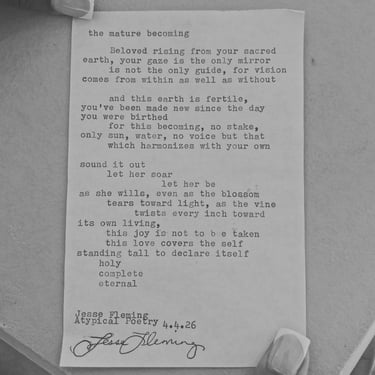 the mature becoming
Beloved rising from your sacred
earth, your gaze is the only mirror
is not the only guide, for vision
comes from within as well as without
and this earth is fertile,
you've been made new since the day
you were birthed
for this becoming, no stake,
only sun, water, no voice but that
which harmonizes with your own
sound it out
let her soar
let her be
as she wills, even as the blossom
tears toward light, as the vine
twists every inch toward
its own living,
this joy is not to b e taken
this love covers the self
standing tall to declare itself
holy
complete
eternal
Jesse Fleming
Atypical Poetry 4.4.26
Jesse Fleming